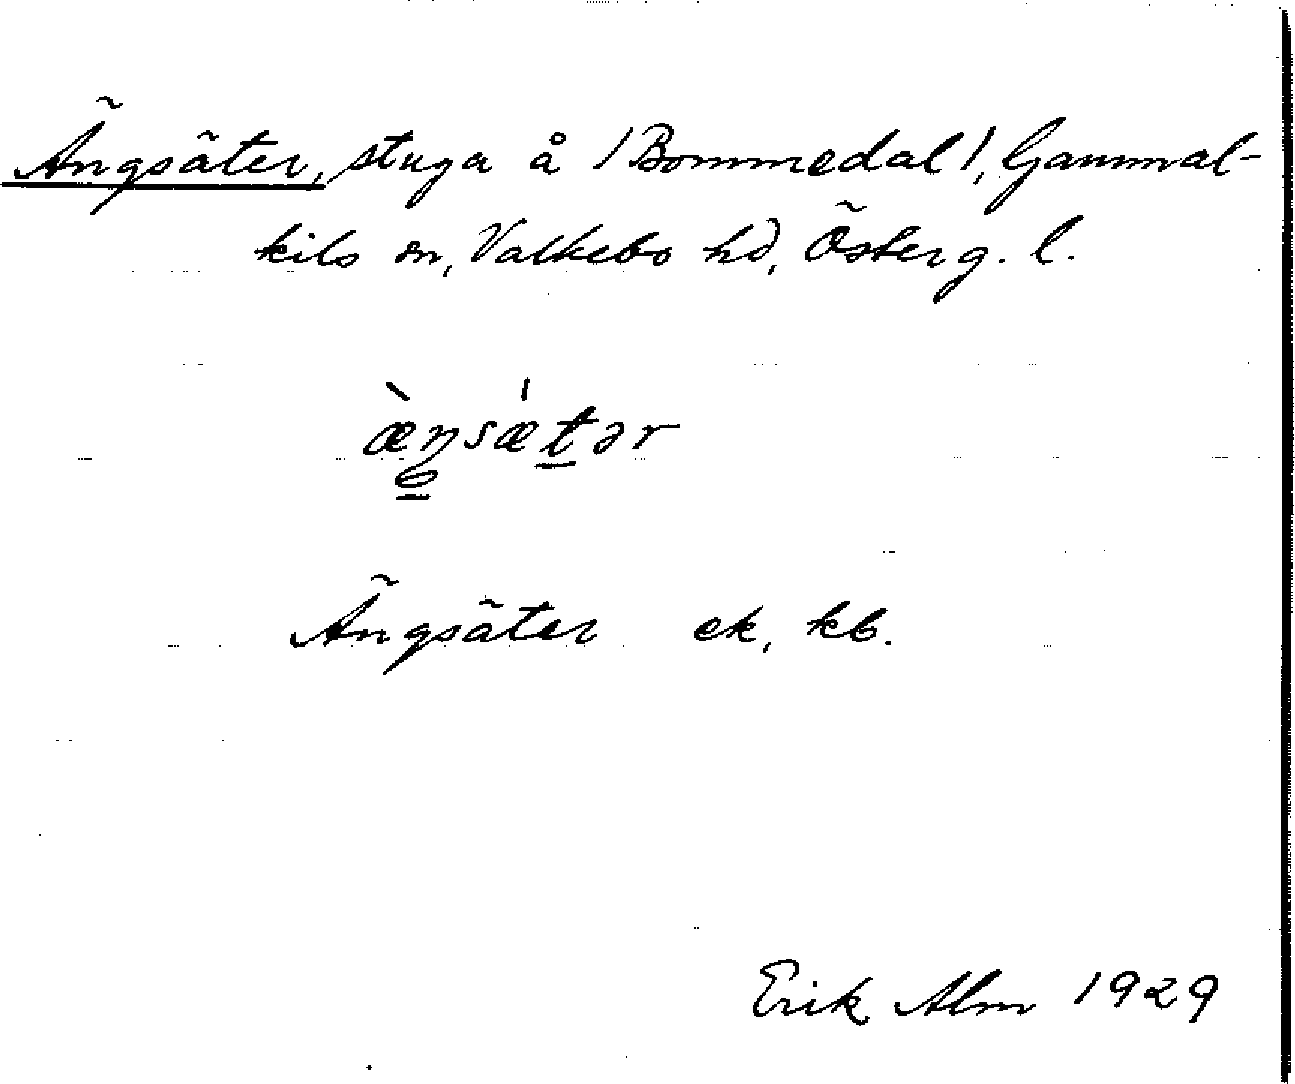 Ängsäter, stuga å /Bommedal/, Gammal-
kils sn, Valkebo hd, Österg. l.
æ̀ŋsæ̍tər
Ängsäter ek, kb.
Erik Alm 1929